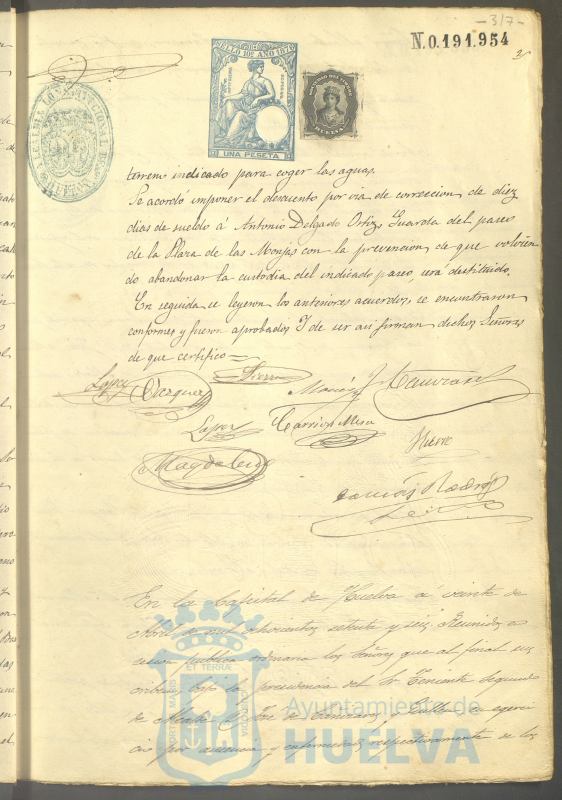 -317-
N.0.191.954
SELLO 10º AÑO 1876
UNA PESETA
HUELVA
terreno indicado para coger las aguas.
Se acordó imponer el descuento por via de correccion, de diez
dias de sueldo á Antonio Delgado Ortiz, Guarda del paseo
de la Plaza de las Monjas con la prevencion, de que volvien
do abandonar la custodia del indicado paseo, será destituido.
En seguida se leyeron los anteriores acuerdos, se encontraron
conformes y fueron aprobados. Y de ser asi firman dichos Señores
de que certifico =
Lopez Vazquez
Lopez Garrido Mesa
Magdalena
En la Capital de Huelva á veinte de
Abril de mil ochocientos setenta y seis, Reunidos en
sesion publica ordinaria los Señores que al final sus
criben, bajo la presidencia del Sr. Teniente segundo
de Alcalde D. José de
cio por ausencia y enfermedad respectivamente de los
PORTUS MARIS ET TERRÆ CUSTODIA
Ayuntamiento de
HUELVA